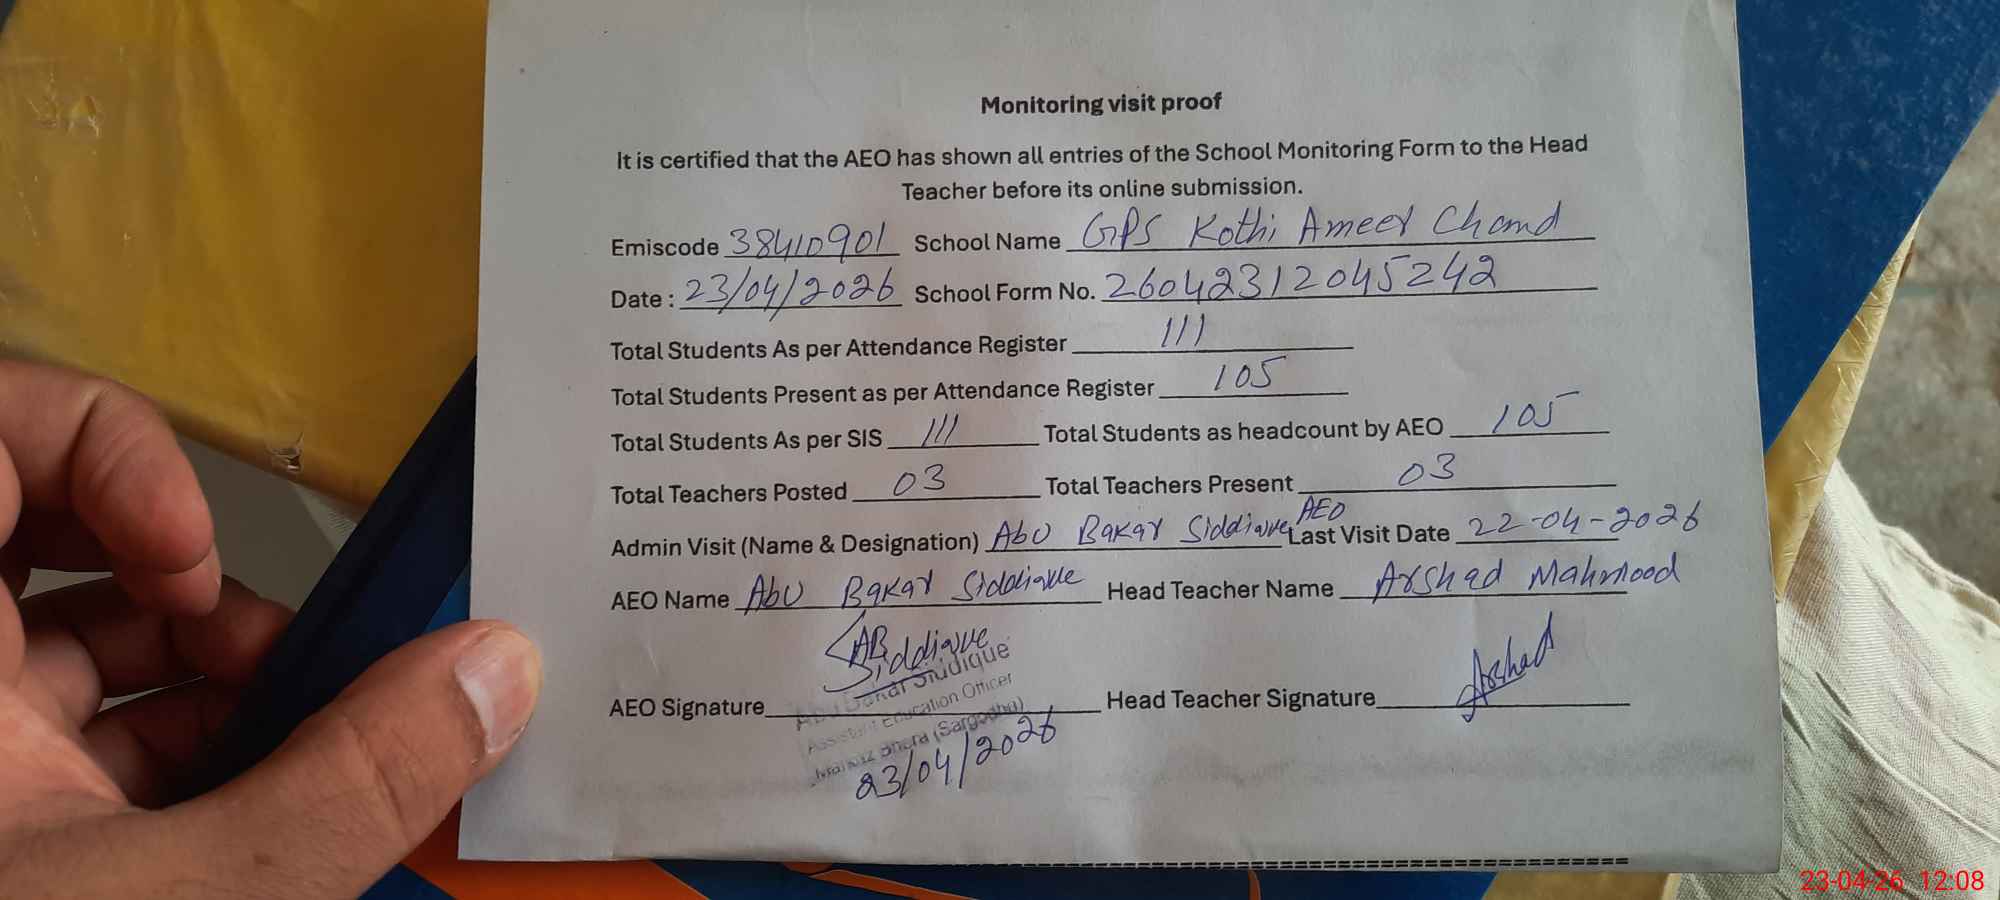 Monitoring visit proof
It is certified that the AEO has shown all entries of the School Monitoring Form to the Head
Teacher before its online submission.
Emiscode 38410901 School Name GPS Kothi Ameer Chand
Date : 23/04/2026 School Form No. 26042312045242
Total Students As per Attendance Register 111
Total Students Present as per Attendance Register 105
Total Students As per SIS 111 Total Students as headcount by AEO 105
Total Teachers Posted 03 Total Teachers Present 03
Admin Visit (Name & Designation) Abu Bakar Siddique AEO Last Visit Date 22-04-2026
AEO Name Abu Bakar Siddique Head Teacher Name Arshad Mahmood
AB Siddique
AEO Signature Head Teacher Signature Arshad
Abu Bakar Siddique
Assistant Education Officer
Bhera (Sargodha)
23/04/2026
23-04-26 12:08